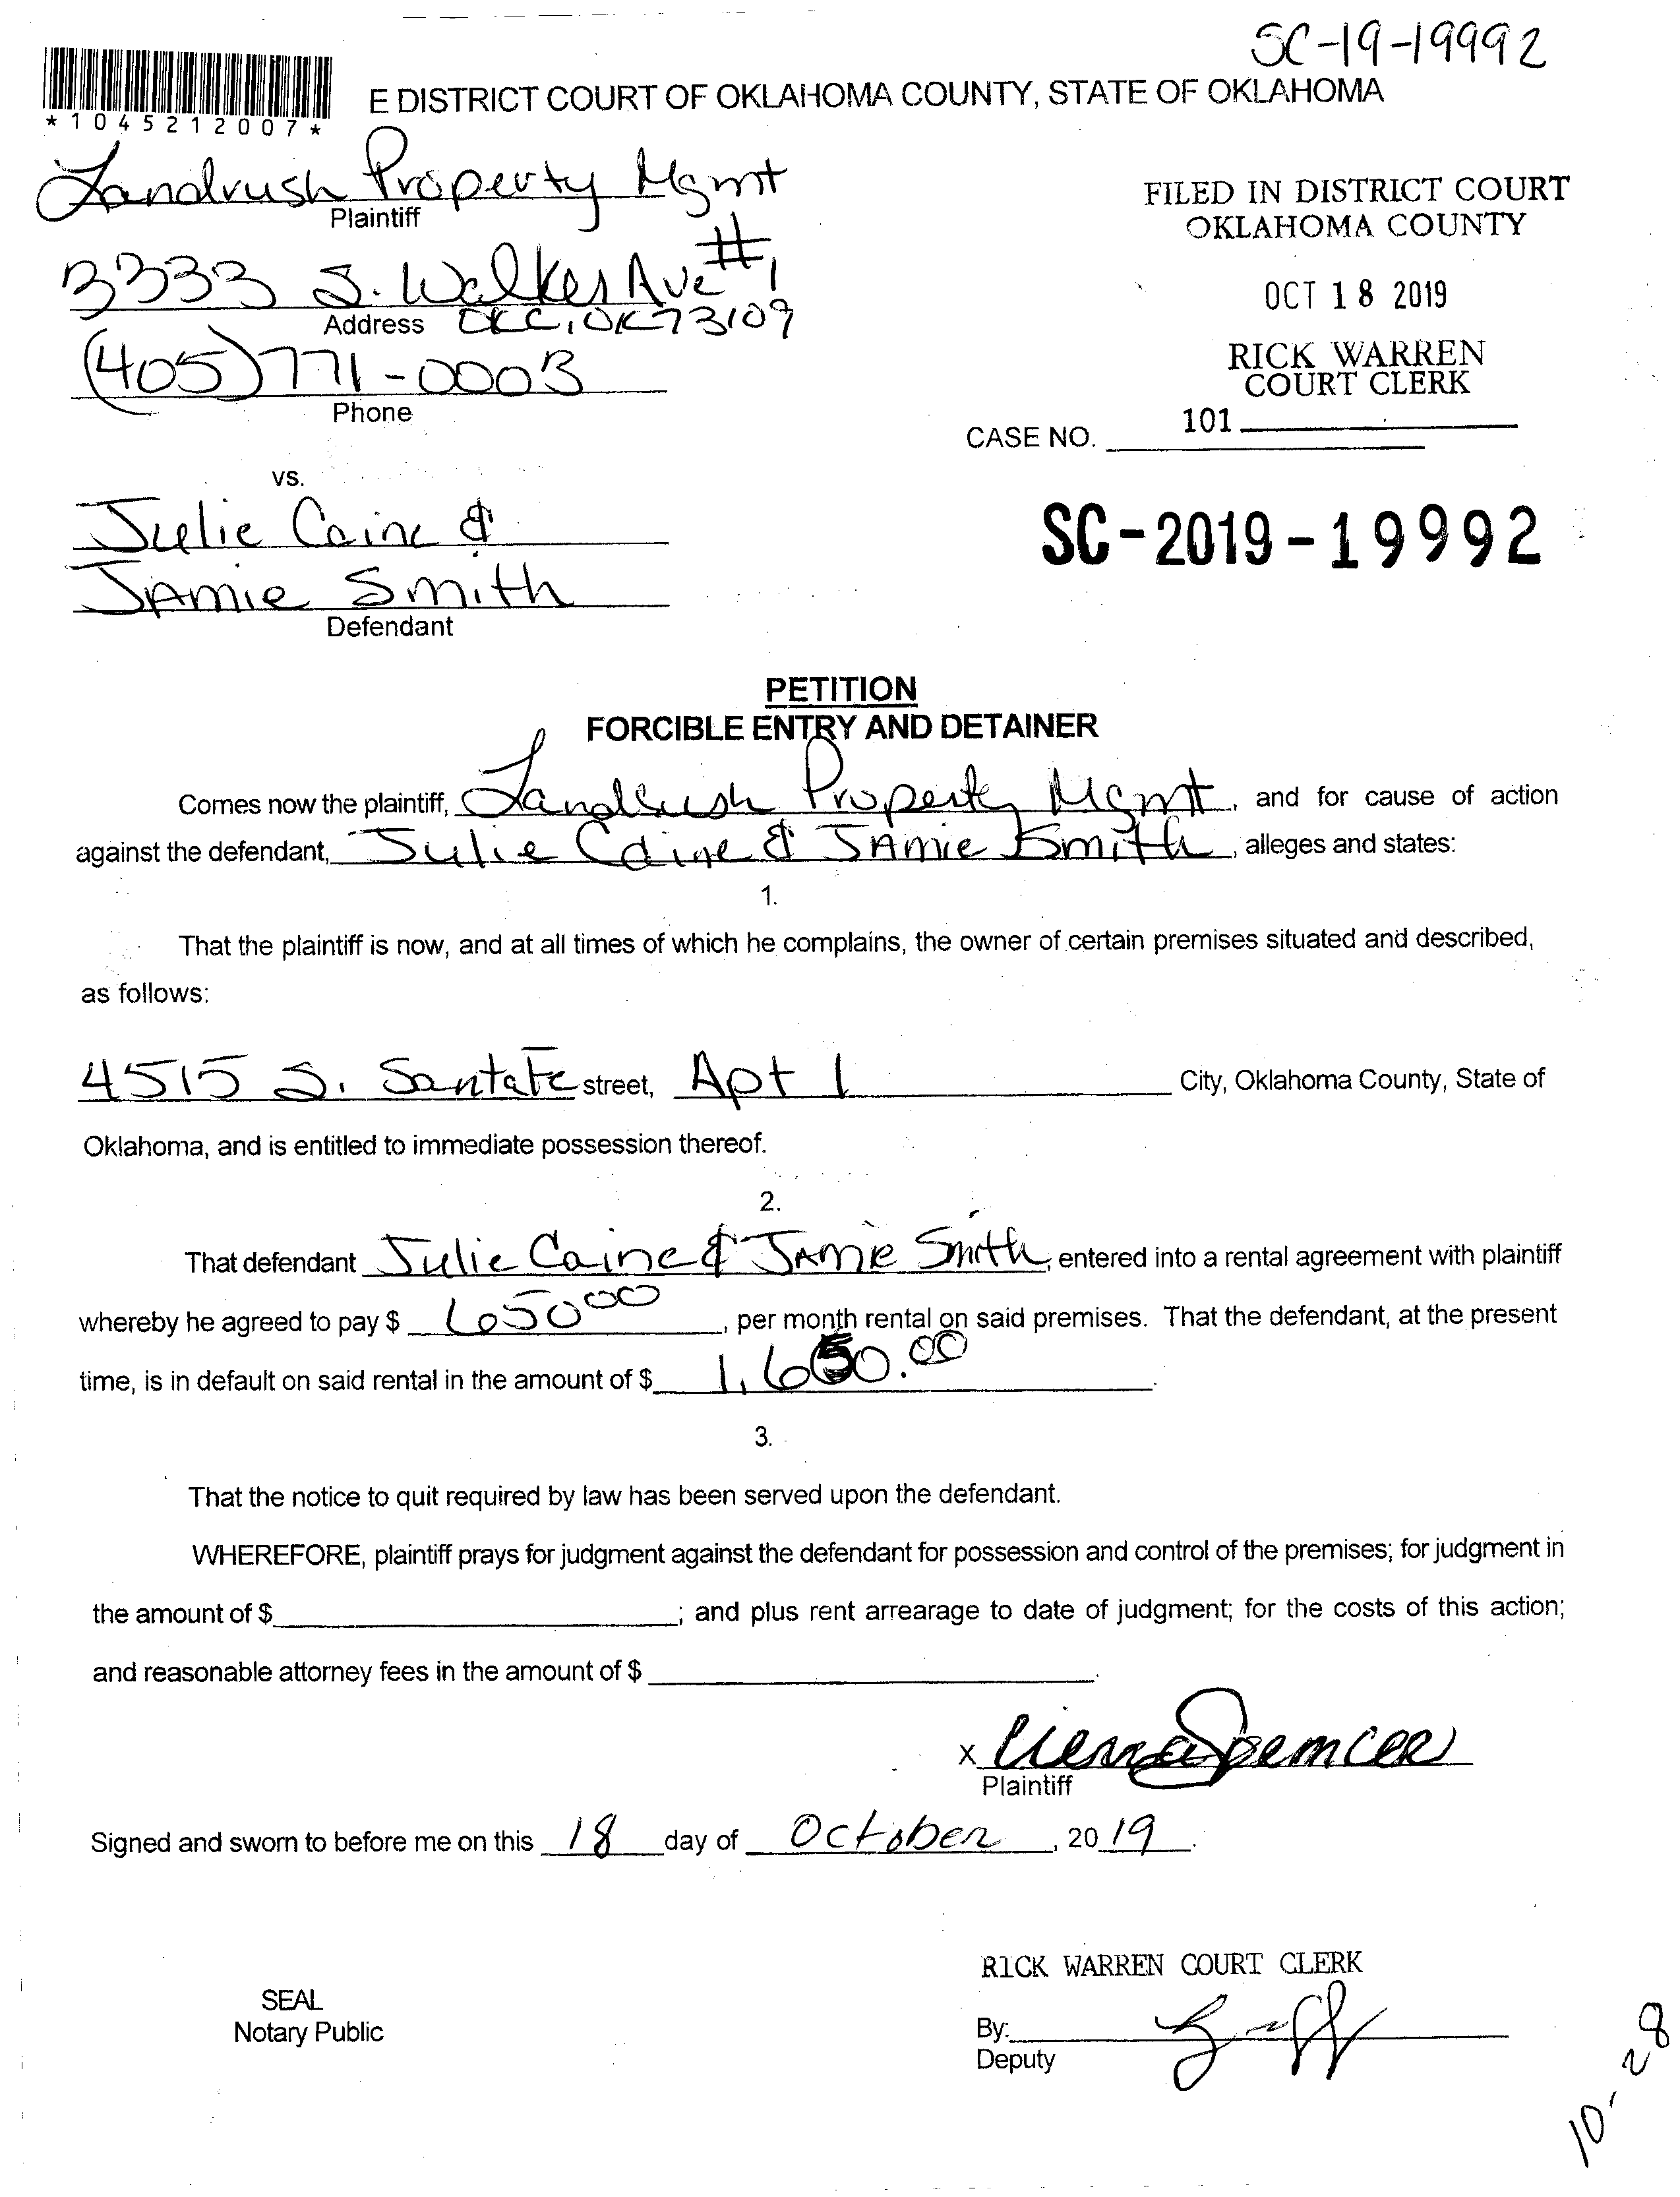 SC-19-19992
*1045212007*
E DISTRICT COURT OF OKLAHOMA COUNTY, STATE OF OKLAHOMA
Landrush Property Mgmt
Plaintiff
3333 S. Walker Ave #1
Address OKC, OK 73109
(405) 771-0003
Phone
FILED IN DISTRICT COURT
OKLAHOMA COUNTY
OCT 18 2019
RICK WARREN
COURT CLERK
101
CASE NO.
vs.
Julie Caine &
JAmie Smith
Defendant
SC-2019-19992
PETITION
FORCIBLE ENTRY AND DETAINER
Comes now the plaintiff, Landrush Property Mgmt, and for cause of action
against the defendant, Julie Caine & JAmie Smith, alleges and states:
1.
That the plaintiff is now, and at all times of which he complains, the owner of certain premises situated and described,
as follows:
4515 S. SantaFe street, Apt 1 City, Oklahoma County, State of
Oklahoma, and is entitled to immediate possession thereof.
2.
That defendant Julie Caine & JAmie Smith, entered into a rental agreement with plaintiff
whereby he agreed to pay $ 65000, per month rental on said premises. That the defendant, at the present
time, is in default on said rental in the amount of $ 1,650.00.
3.
That the notice to quit required by law has been served upon the defendant.
WHEREFORE, plaintiff prays for judgment against the defendant for possession and control of the premises; for judgment in
the amount of $ ; and plus rent arrearage to date of judgment; for the costs of this action;
and reasonable attorney fees in the amount of $ .
X Spencer
Plaintiff
Signed and sworn to before me on this 18 day of October, 2019.
RICK WARREN COURT CLERK
SEAL
Notary Public
By:
Deputy
10-28